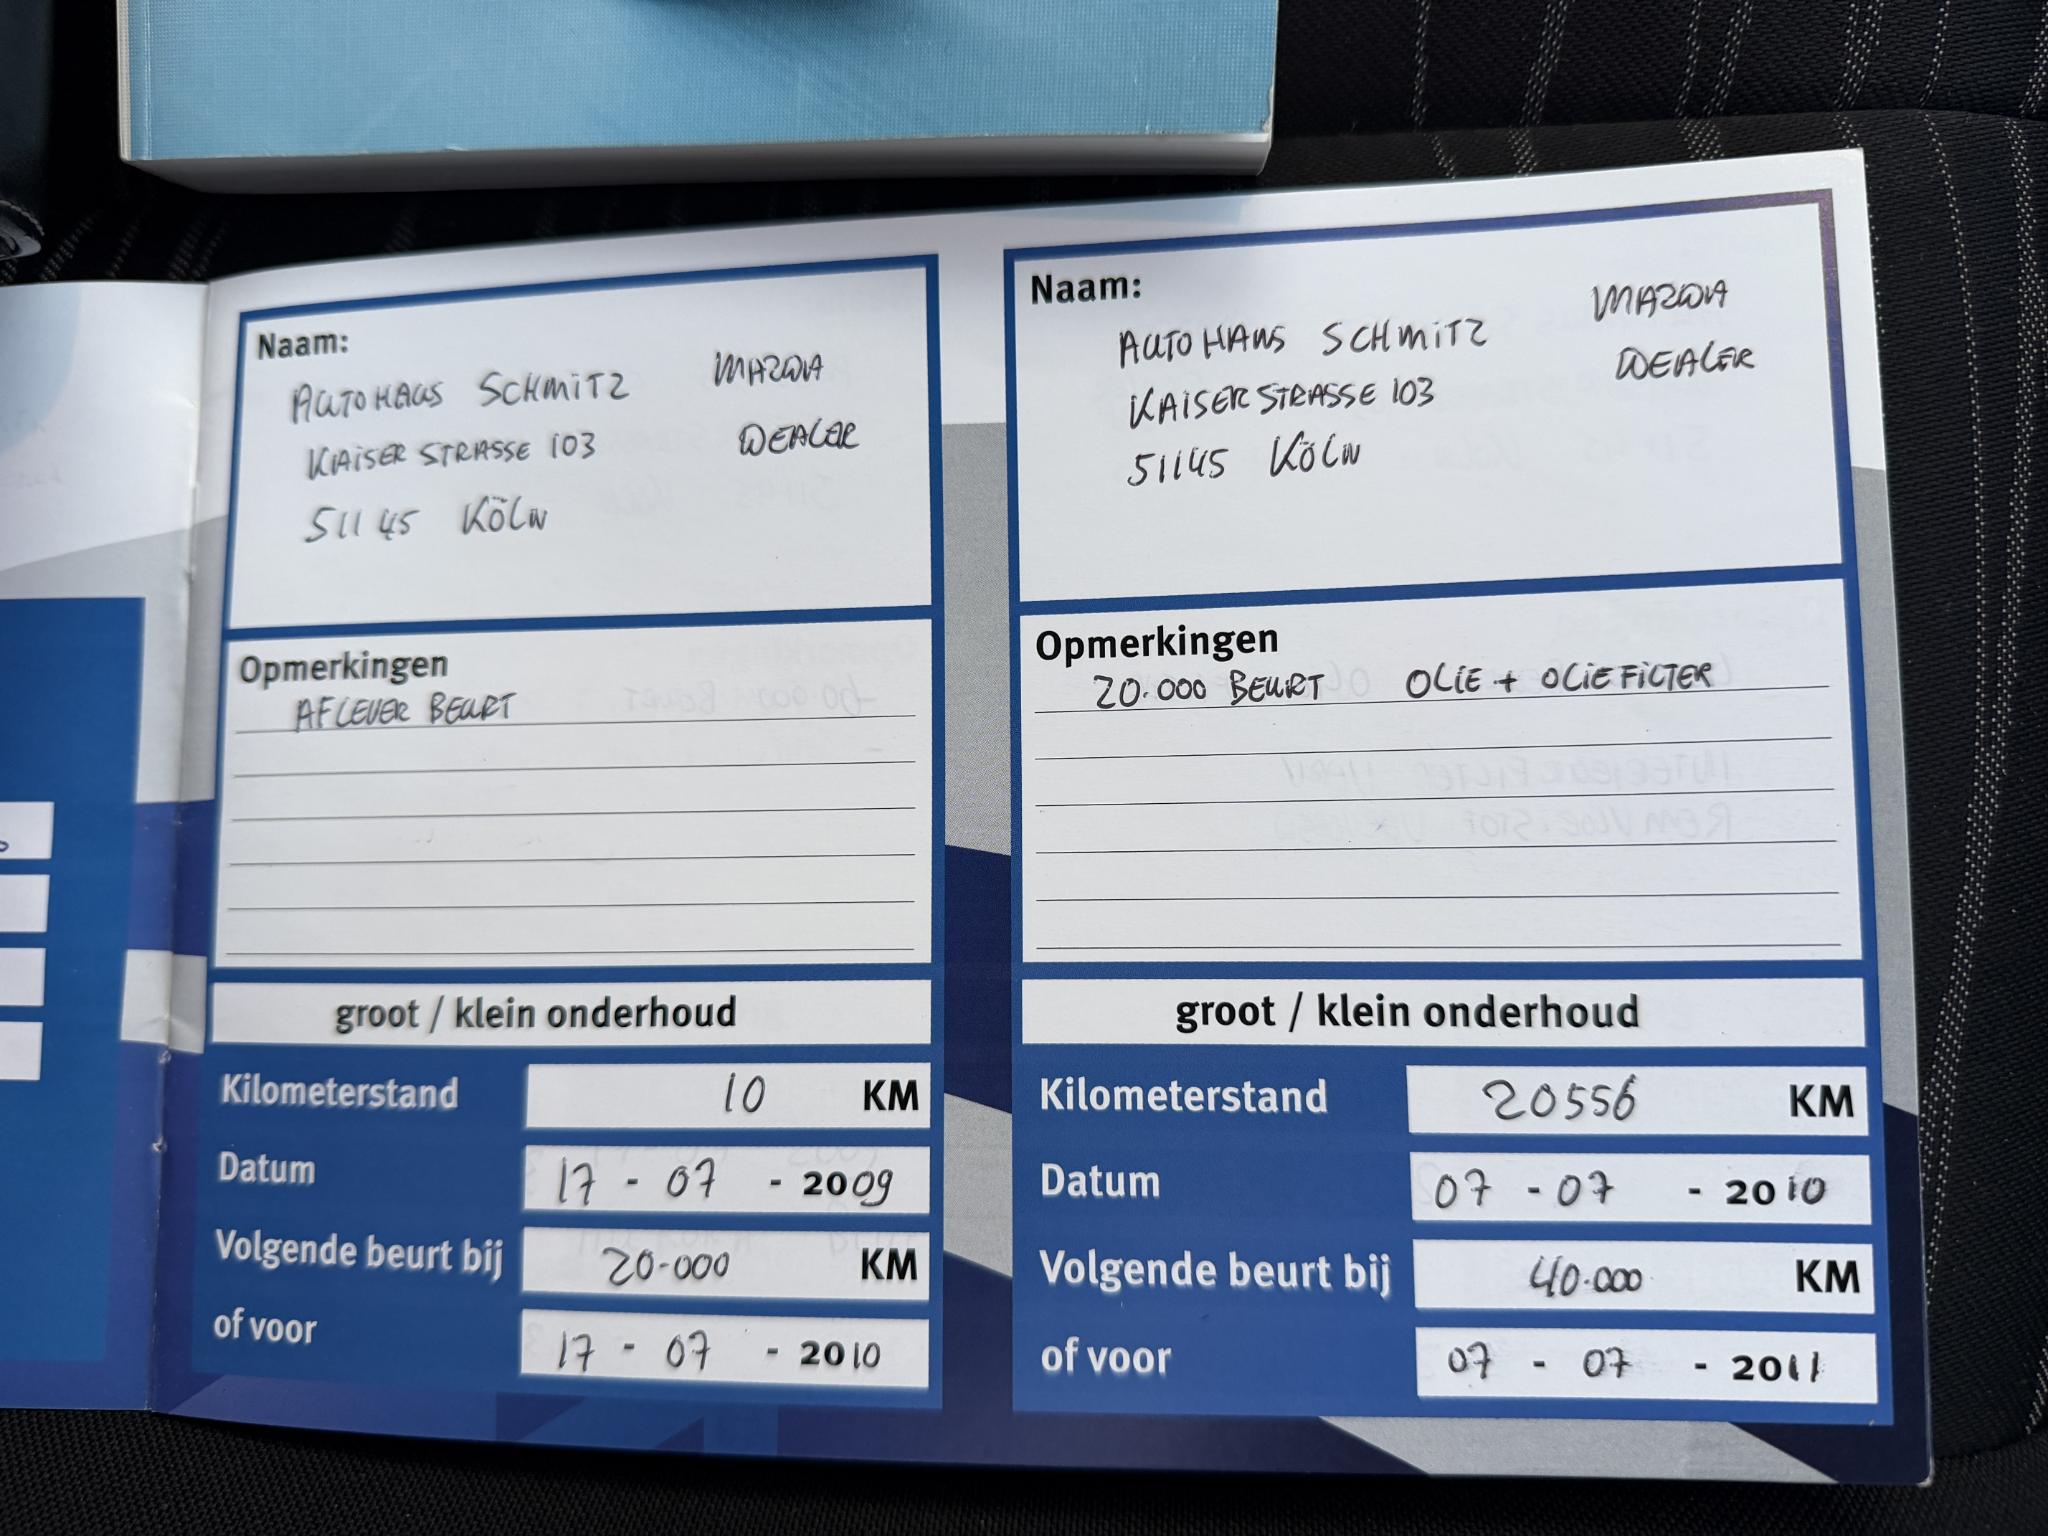 Naam:
AUTOHAUS SCHMITZ MAZDA
KAISERSTRASSE 103 DEALER
51145 KÖLN
Opmerkingen
AFLEVER BEURT
groot / klein onderhoud
Kilometerstand 10 KM
Datum 17 - 07 - 2009
Volgende beurt bij 20.000 KM
of voor 17 - 07 - 2010
Naam:
AUTOHAUS SCHMITZ MAZDA
KAISERSTRASSE 103 DEALER
51145 KÖLN
Opmerkingen
20.000 BEURT OLIE + OLIEFILTER
groot / klein onderhoud
Kilometerstand 20556 KM
Datum 07 - 07 - 2010
Volgende beurt bij 40.000 KM
of voor 07 - 07 - 2011